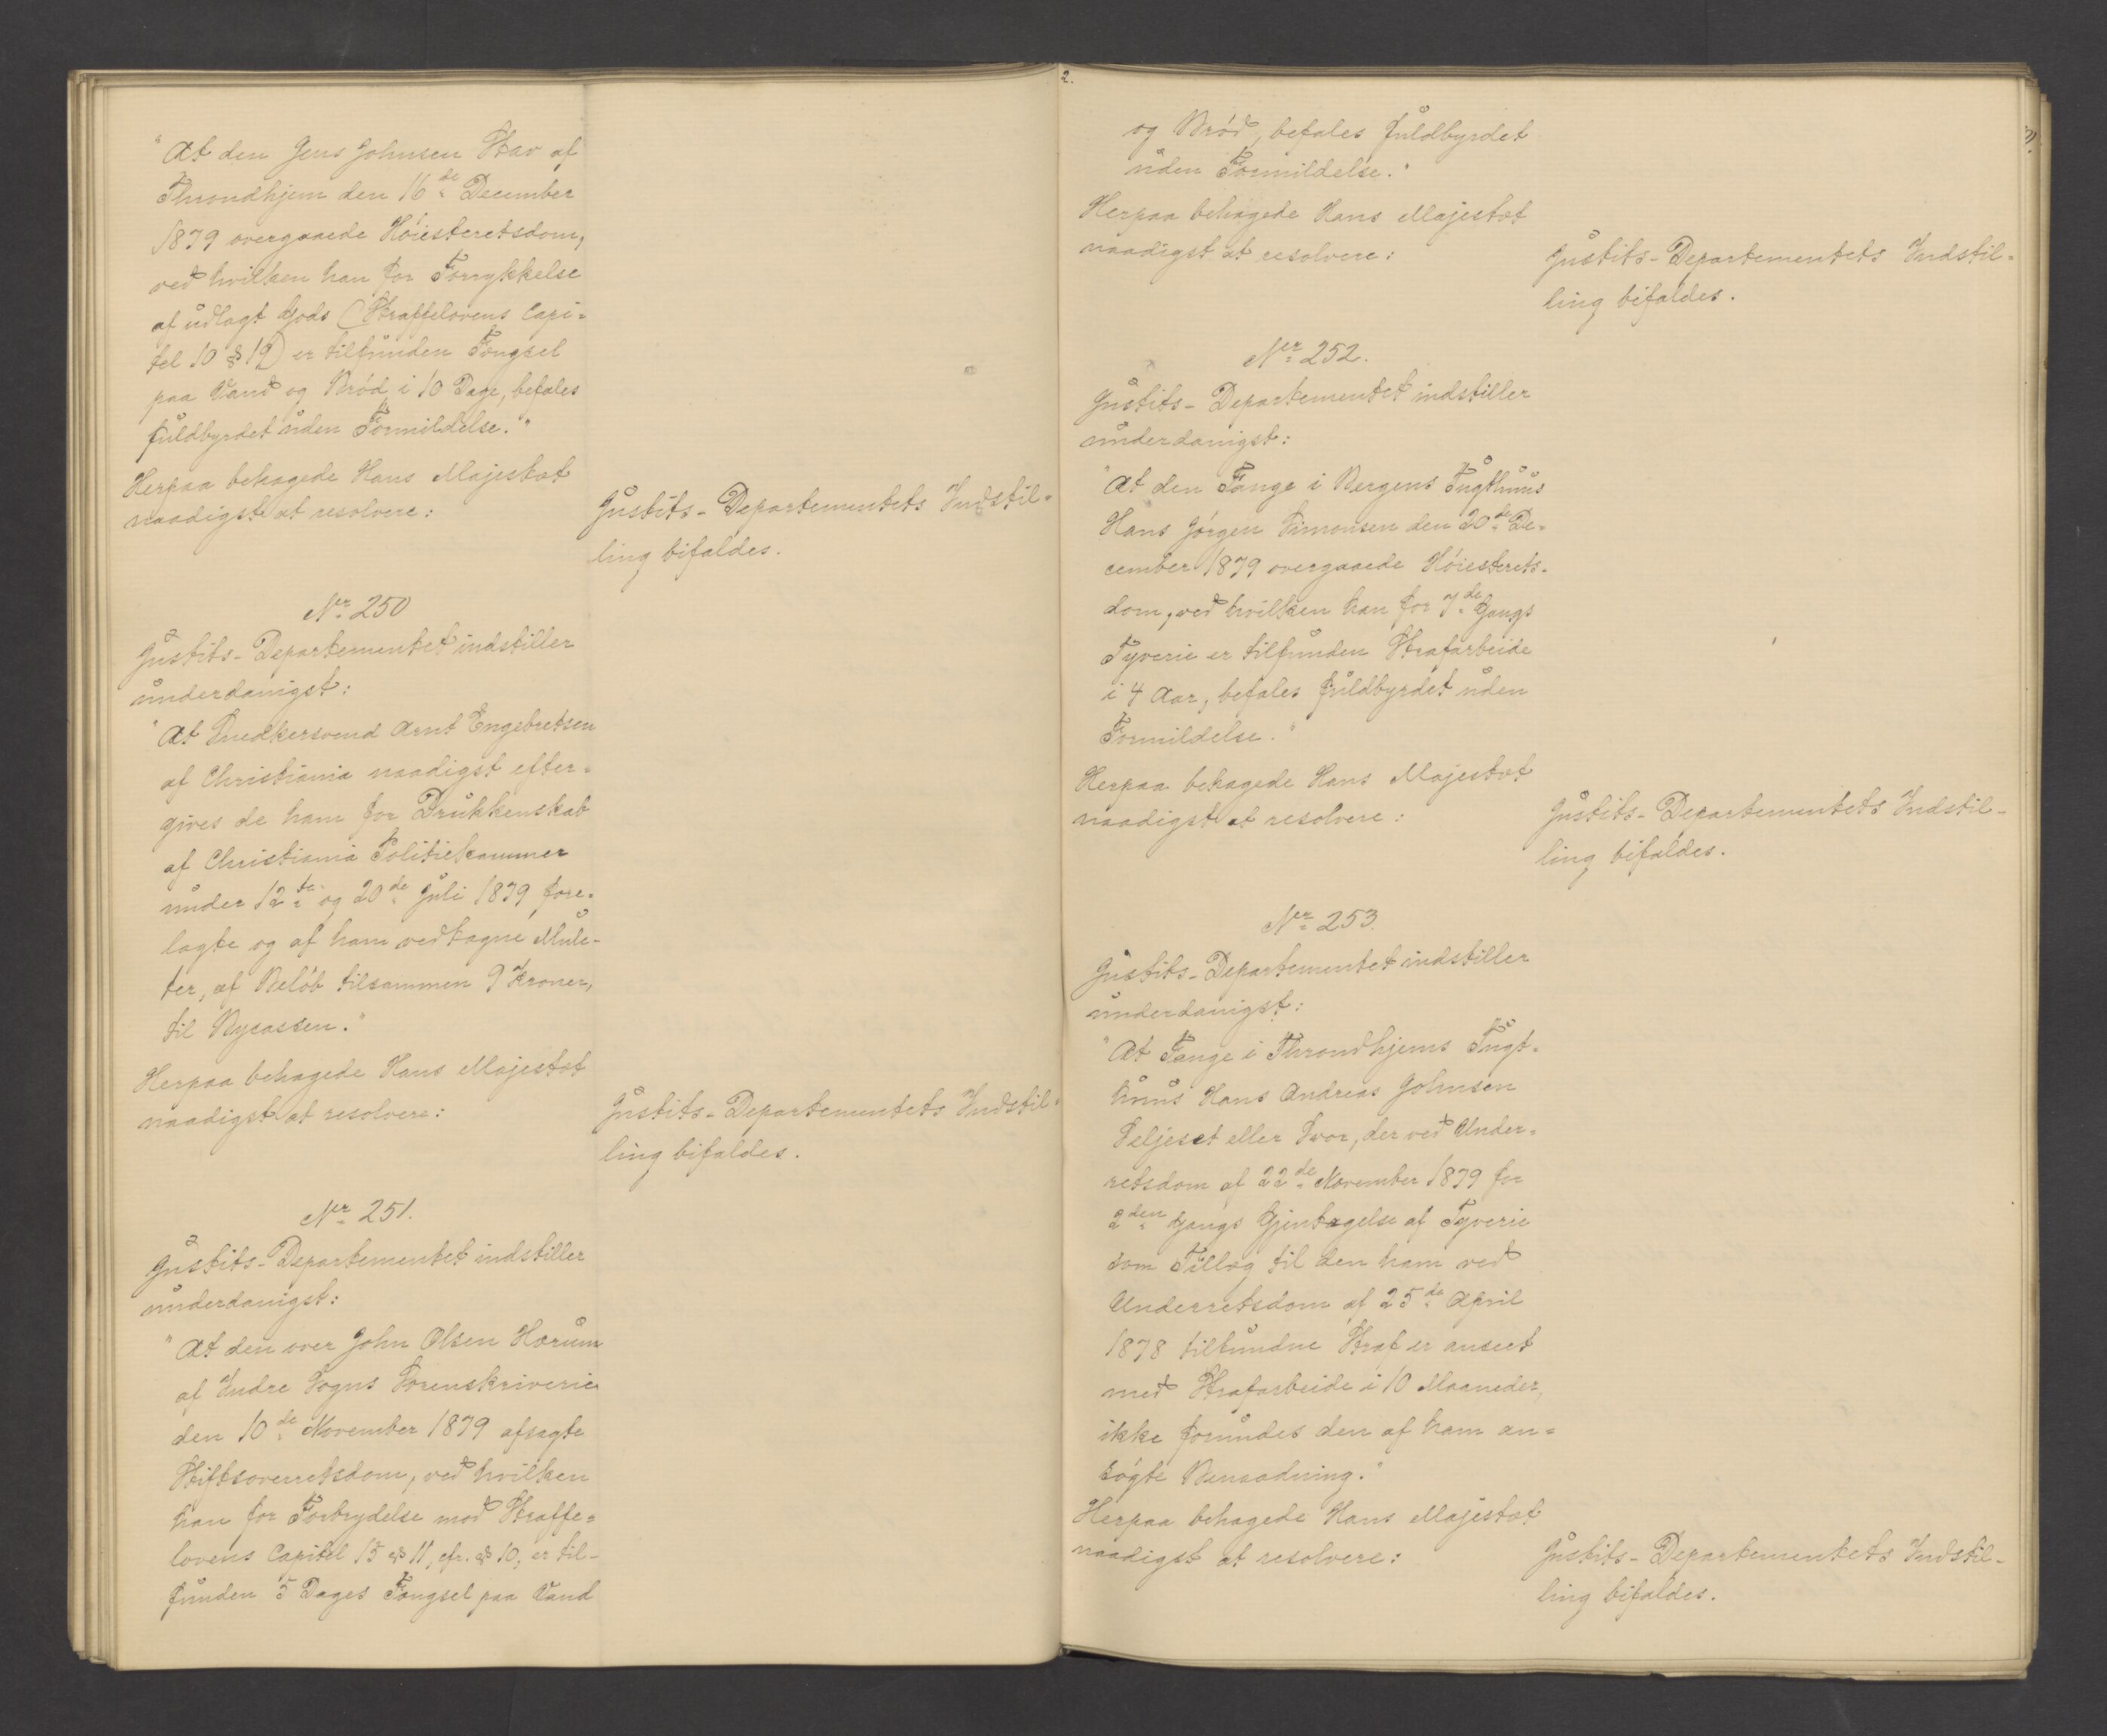 "At den Jens Johnsen Stav af
Throndhjem den 16de December
1879 overgaaede Høiesteretsdom,
ved hvilken han for Forrykkelse
af udlagt Gods (Straffelovens Capi=
tel 10 § 12) er tilfunden Fængsel
paa Vand og Brød i 10 Dage, befales
fuldbyrdet uden Formildelse."
Herpaa behagede Hans Majestæt
naadigst at resolvere:
Justits-Departementets Indstil=
ling bifaldes.
No 250
Justits-Departementet indstiller
underdanigst:
"At Snedkersvend Arnt Engebretsen
af Christiania naadigst efter=
gives de ham for Drukkenskab
af Christiania Politiekammer
under 12te og 20de Juli 1879 fore=
lagte og af ham vedtagne Mulc-
ter, af Beløb tilsammen 9 Kroner,
til Bycassen."
Herpaa behagede Hans Majestæt
naadigst at resolvere:
Justits-Departementets Indstil=
ling bifaldes.
No 251.
Justits-Departementet indstiller
underdanigst:
"At den over John Olsen Hærum
af Indre Sogns Sorenskriverie
den 10de November 1879 afsagte
Stiftsoverretsdom, ved hvilken
han for Forbrydelse mod Straffe=
lovens Capitel 15 § 11, cfr. § 10, er til-
funden 5 Dages Fængsel paa Vand
2.
og Brød, befales fuldbyrdet
uden Formildelse."
Herpaa behagede Hans Majestæt
naadigst at resolvere:
Justits-Departementets Indstil=
ling bifaldes.
No 252.
Justits-Departementet indstiller
underdanigst:
"At den Fange i Bergens Tugthuus
Hans Jørgen Simonsen den 20de De=
cember 1879 overgaaede Høiesterets-
dom, ved hvilken han for 7de Gangs
Tyverie er tilfunden Strafarbeide
i 4 Aar, befales fuldbyrdet uden
Formildelse."
Herpaa behagede Hans Majestæt
naadigst at resolvere:
Justits-Departementets Indstil-
ling bifaldes.
No 253.
Justits-Departementet indstiller
underdanigst:
"At Fange i Throndhjems Tugt=
huus Hans Andreas Johnsen
Seljeset eller Svor, der ved Under=
retsdom af 22de November 1879 for
2den Gangs Gjentagelse af Tyverie
som Tillæg til den ham ved
Underretsdom af 25de April
1878 tilfundne Straf er anseet
med Strafarbeide i 10 Maaneder,
ikke forundes den af ham an=
søgte Benaadning."
Herpaa behagede Hans Majestæt
naadigst at resolvere:
Justits-Departementets Indstil-
ling bifaldes.